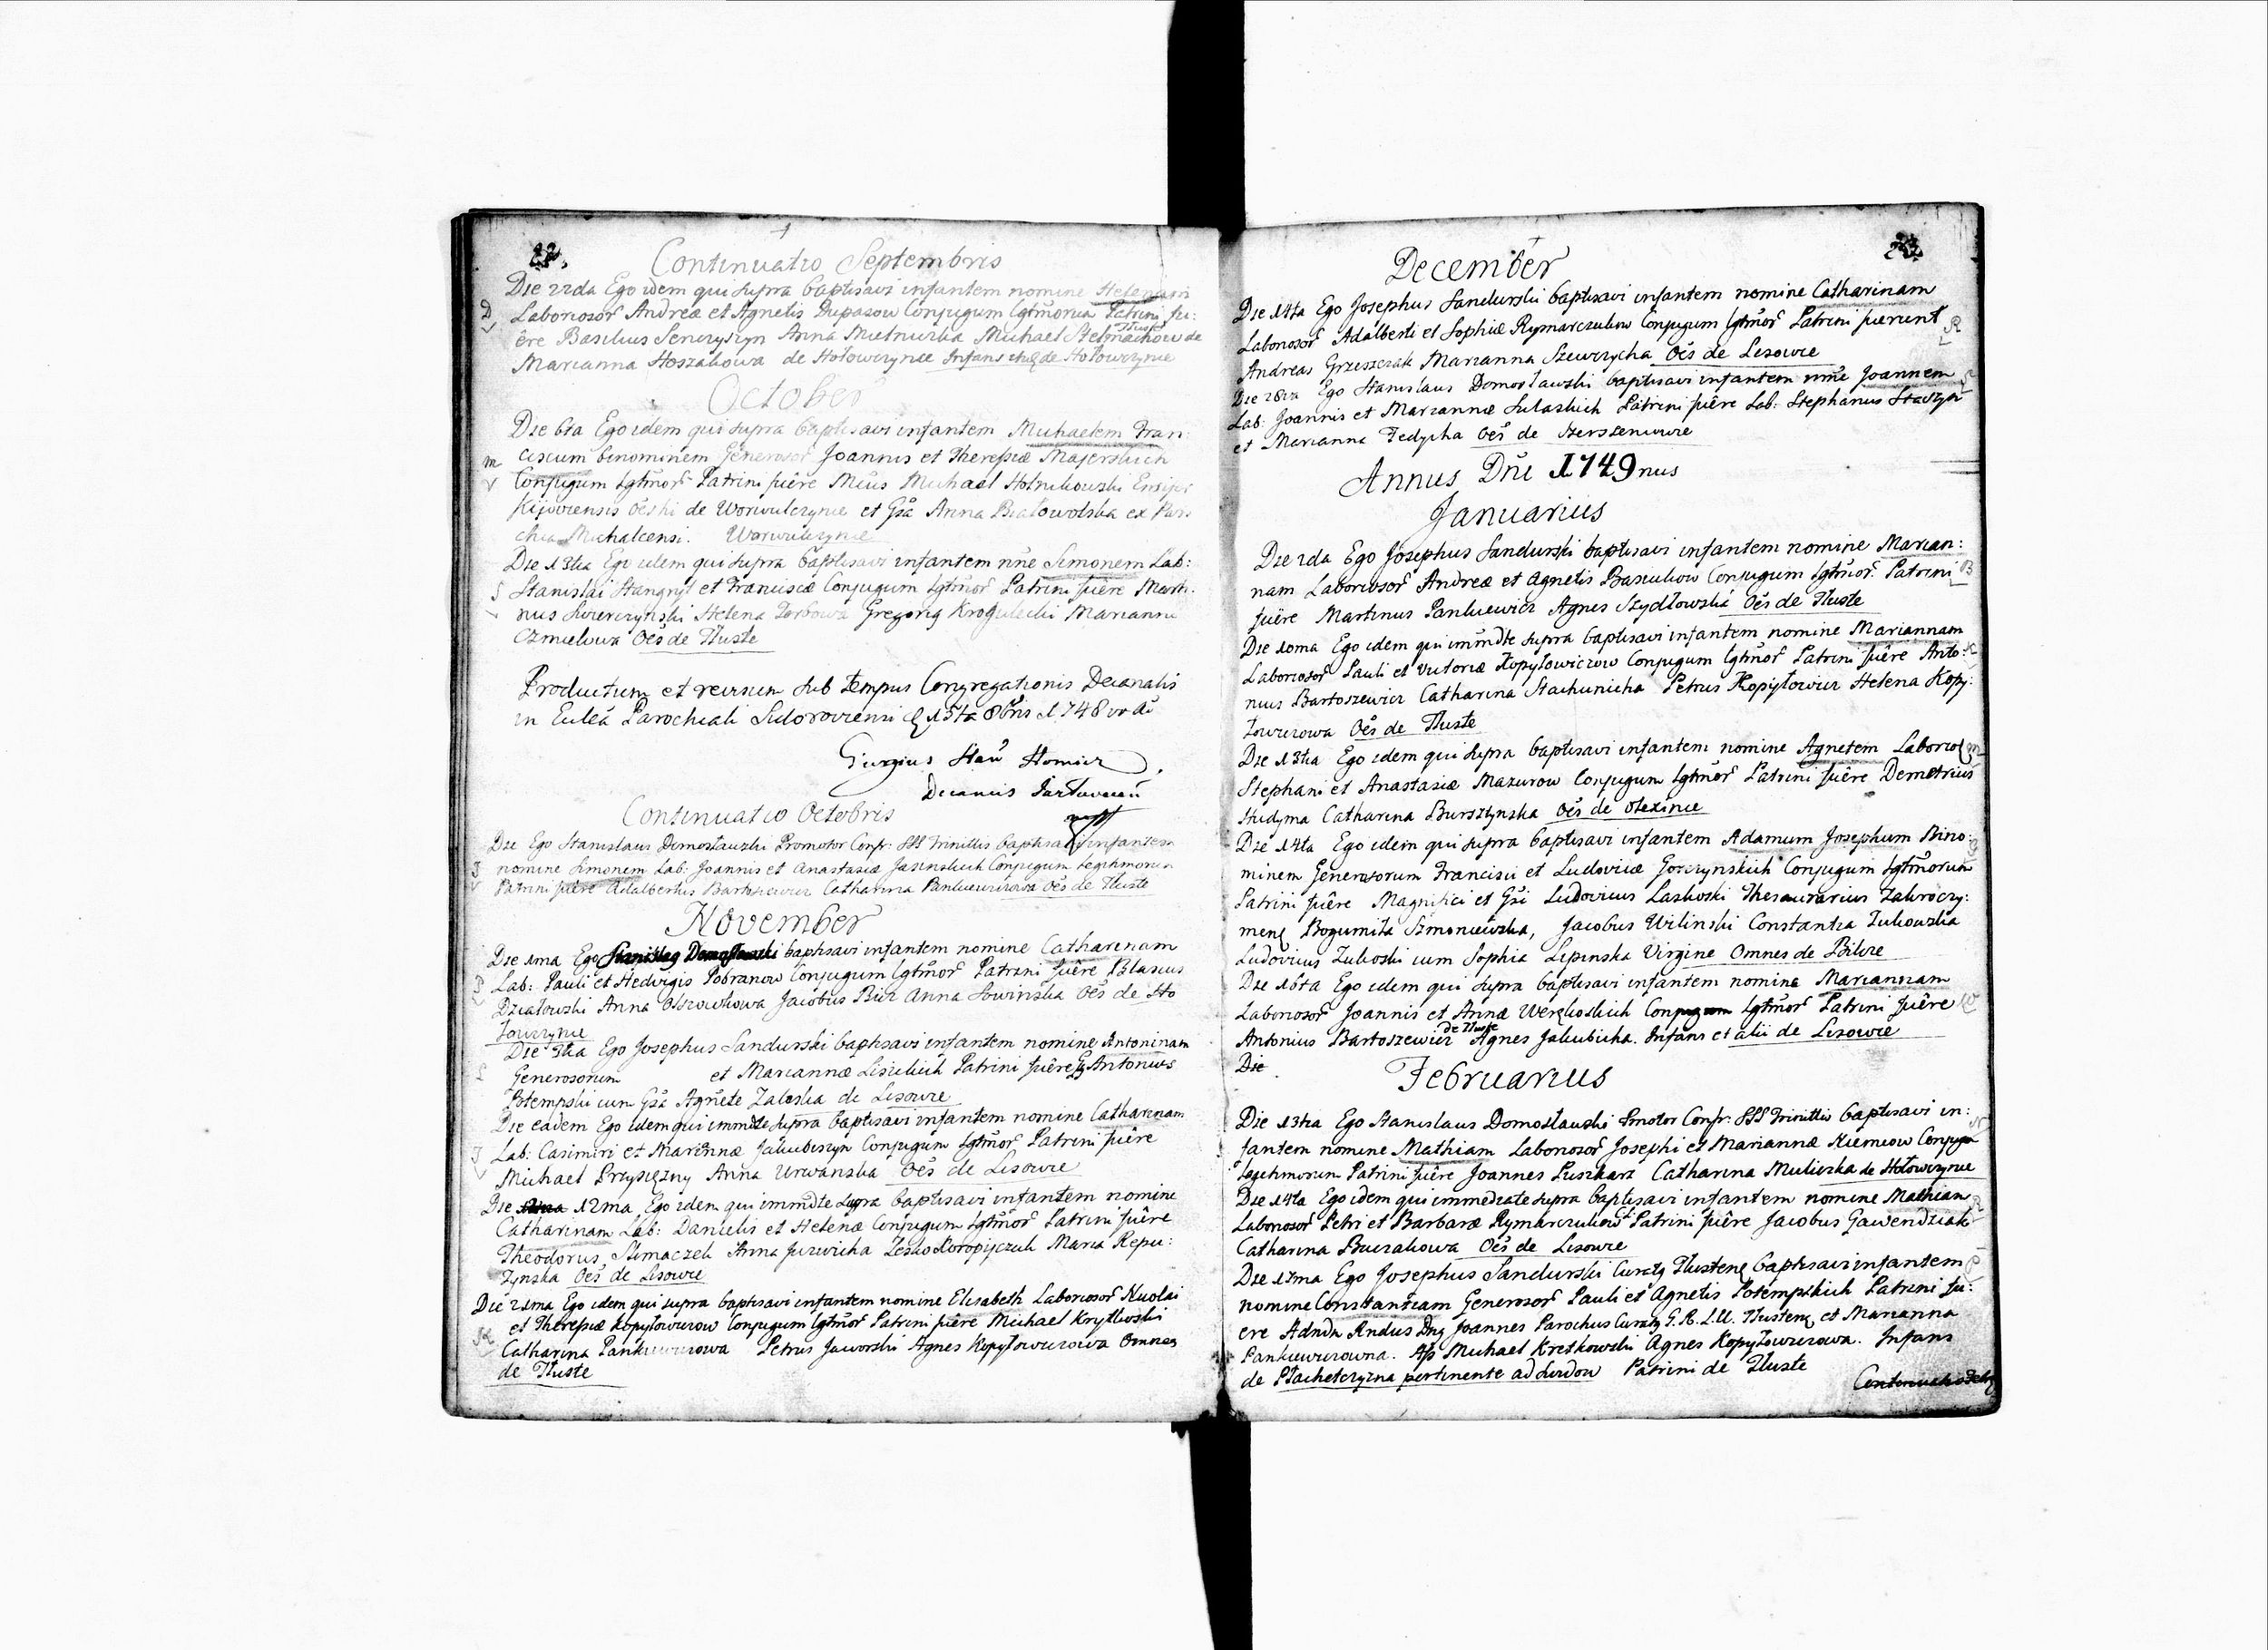 22.
Continuatio Septembris
Die 22da Ego idem qui supra baptisavi infantem nomine Helenam
D Laboriosor̃ Andreæ et Agnetis Dupasow Conjugum Lgtm̃orum Patrini fu:
êre Basilius Anna Mielnicka Michael Stelmachow de
Tłuste
Marianna Hoszakowa de Hołowczynce Infans de Hołowczynce
October
Die 6ta Ego idem qui supra baptisavi infantem Michaelem Fran:
m ciscum binominem Generosor̃ Joannis et Theressiæ Majerskich
Conjugum Lgtm̃or̃ Patrini fuêre Michael Hołnikowski
Kijoviensis de Worwulczynie et Gsa Anna Białowolska ex Paro
chia Michalcensi. Worwulczynie
Die 13tia Ego idem qui supra baptisavi infantem nñe Simonem Lab:
S Stanislai Stangryt et Franciscæ Conjugum Lgtm̃or̃ Patrini fuêre Marti:
nus Swierczynski Helena Gregorius Krogulecki Marianna
Czmielowa Oẽs de Tłuste
Productum et revisum sub tempus Congregationis Decanalis
in Eccleã Parochiali Sidoroviensi 15ta 8bris 1748vo
Continuatio Octobris
Die Ego Stanislaus Domosławski Promotor Confr: SSS Trinittis baptisavi infantem
J nomine Simonem Lab: Joannis et Anastasiæ Jasinskich Conjugum Legitimorum
Patrini fuêre Adalbertus Bartoszewicz Catharina Pankiewiczowa Oẽs de Tłuste
November
Die 1ma Ego Stanislaus Domosławski baptisavi infantem nomine Catharinam
P Lab: Pauli et Hedvigis Pobranow Conjugum Lgtm̃or̃ Patrini fuêre Blasius
Działowski Anna Jacobus Bicz Anna Sowinska Oẽs de Ho
łowczynce
Die 3tia Ego Josephus Sandurski baptisavi infantem nomine Antoninam
L Generosorum et Mariannæ Lisickich Patrini fuêre Gs Antonius
Potempski cum Gsa Agnete Zaleska de Lisowce
Die eadem Ego idem qui immdte supra baptisavi infantem nomine Catharinam
J Lab: Casimiri et Mariannæ Jakubiszyn Conjugum Lgtm̃or̃ Patrini fuêre
Michael Przysięzny Anna Urwanska Oẽs de Lisowce
Die 12ma Ego idem qui immdte supra baptisavi infantem nomine
Catharinam Lab: Danielis et Helenæ Conjugum Lgtm̃or̃ Patrini fuêre
Theodorus Slimaczek Anna Jurwicha Lesko Koropiyczuk Maria Repu:
zynska Oẽs de Lisowce
Die 21ma Ego idem qui supra baptisavi infantem nomine Elisabeth Laboriosor̃ Nicolai
K et Theressiæ Kopyłowiczow Conjugum Lgtm̃or̃ Patrini fuêre Michael Krytkoski
Catharina Pankiewiczowa Petrus Jaworski Agnes Kopyłowiczowa Omnes
de Tłuste
23.
December
Die 14ta Ego Josephus Sandurski baptisavi infantem nomine Catharinam
Laboriosor̃ Adalberti et Sophiæ Rymarczukow Conjugum Lgtm̃or̃ Patrini fuerunt R
Andreas Grzeszczak Marianna Szewczycha Oẽs de Lisowce
Die 28va Ego Stanislaus Domosławski baptisavi infantem nm̃e Joannem S
Lab: Joannis et Mariannæ Sulaskich Patrini fuêre Lab: Stephanus Staszyn
et Marianna Fedycha Oẽs de Szerszeniowce
Annus Dñi 1749nus
Januarius
Die 2da Ego Josephus Sandurski baptisavi infantem nomine Marian:
nam Laboriosor̃ Andreæ et Agnetis Basiukow Conjugum Lgtm̃or̃. Patrini B
fuêre Martinus Pankiewicz Agnes Szydłowska Oẽs de Tłuste
Die 10ma Ego idem qui immdte supra baptisavi infantem nomine Mariannam
Laboriosor̃ Pauli et Victoriæ Kopyłowiczow Conjugum Lgtm̃or̃ Patrini fuêre Anto: K
nius Bartoszewicz Catharina Stachunicha Petrus Kopyłowicz Helena Kopy:
łowiczowa Oẽs de Tłuste
Die 13tia Ego idem qui supra baptisavi infantem nomine Agnetem Laborios m
Stephani et Anastasiæ Mazurow Conjugum Lgtm̃or̃ Patrini fuêre Demetrius
Hudyma Catharina Bursztynska Oẽs de Olexince
Die 14ta Ego idem qui supra baptisavi infantem Adamum Josephum Bino:
minem Generosorum Francisci et Ludovicæ Gorczynskich Conjugum Lgtm̃orum
Patrini fuêre Magnifici et Gsi Ludovicus Laskoski Thesaurarius Zakroczy:
mens Bogumiła Szmoniewska, Jacobus Wilinski Constantia Zukowska
Ludovicus Zukoski cum Sophia Lipinska Virgine Omnes de Bilcze
Die 16ta Ego idem qui supra baptisavi infantem nomine Mariannam
Laboriosor̃ Joannis et Annæ Weryhoskich Conjugum Lgtm̃or̃ Patrini fuêre W
de Tłuste
Antonius Bartoszewicz Agnes Jakubicha. Infans et alii de Lisowce
Die
Februarius
Die 13tia Ego Stanislaus Domosławski Pmotor Confr: SSS Trinittis baptisavi in:
fantem nomine Mathiam Laboriosor̃ Josephi et Mariannæ Niemcow Conjugu N
legitimorum Patrini fuêre Joannes Puszkarz Catharina Mulicka de Hołowczynce
Die 14ta Ego idem qui immediate supra baptisavi infantem nomine Mathiam
Laboriosor̃ Petri et Barbaræ Rymarczukow Patrini fuêre Jacobus Gawendziak R
Catharina Buczakowa Oẽs de Lisowce
Die 17ma Ego Josephus Sandurski Curatus Tłustens baptisavi infantem
nomine Constantiam Generosor̃ Pauli et Agnetis Potempskich Patrini fu: P
ere Adndu Rndus Dnus Joannes Parochus Curatus G. R. L. U. Tłustens et Marianna
Pankiewiczowna. Ass Michael Kretkowski Agnes Kopyłowiczowa. Infans
de Płachetczyzna pertinente ad Swidow Patrini de Tłuste